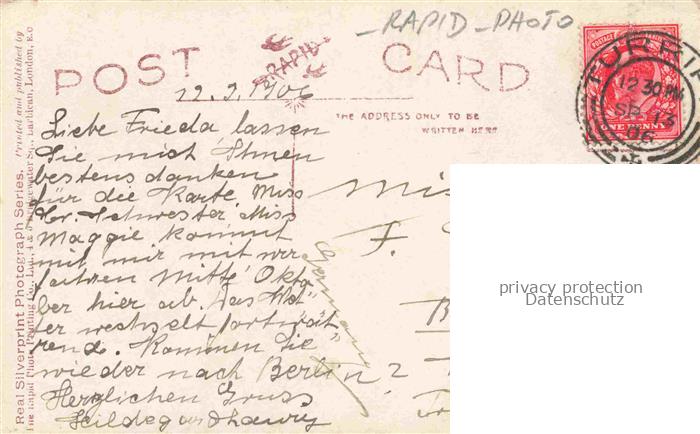 - RAPID - PHOTO
POST CARD
RAPID
TURRI
12 30 PM
SP 13
06
POSTAGE
ONE PENNY
THE ADDRESS ONLY TO BE
WRITTEN HERE
12.9.1906
Liebe Frieda lassen
Sie mich Ihnen
bestens danken
für die Karte. Miss
Ihr. Schwester, Miss
Maggie kommt
mit mir mit wir
fahren Mitte Okto
ber hier ab. Das Wet
ter wechselt fortwäh
rend. Kommen Sie
wieder nach Berlin?
Herzlichen Gruss
Hildegard
Germany
Mis
F.
B
privacy protection
Datenschutz
Real Silverprint Photograph Series.
Printed and published by
The Rapid Photo Printing Co., Ltd., 4 & Bridgewater Sq., Barbican, London, E.C